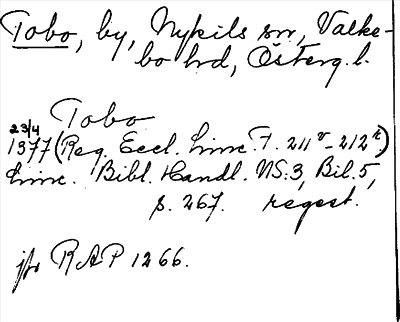 Tobo, by, Nykils sn, Valke-
bo hd, Österg. l.
Tobo
23/4
1377 (Reg. Eccl. Linc. F. 211v-212r.)
Linc. Bibl. Handl. NS. 3, Bil. 5,
s. 267. regest.
jfr RAP 1266.